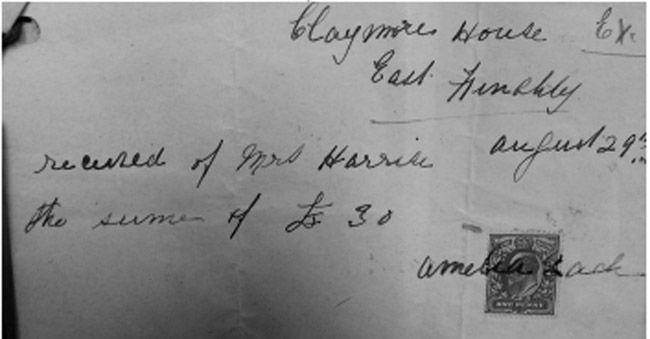 Claymore House Ex.
East Finchly
august 29th
received of Mrs Harris
the sume of £s 30
amelia Sach
ONE PENNY